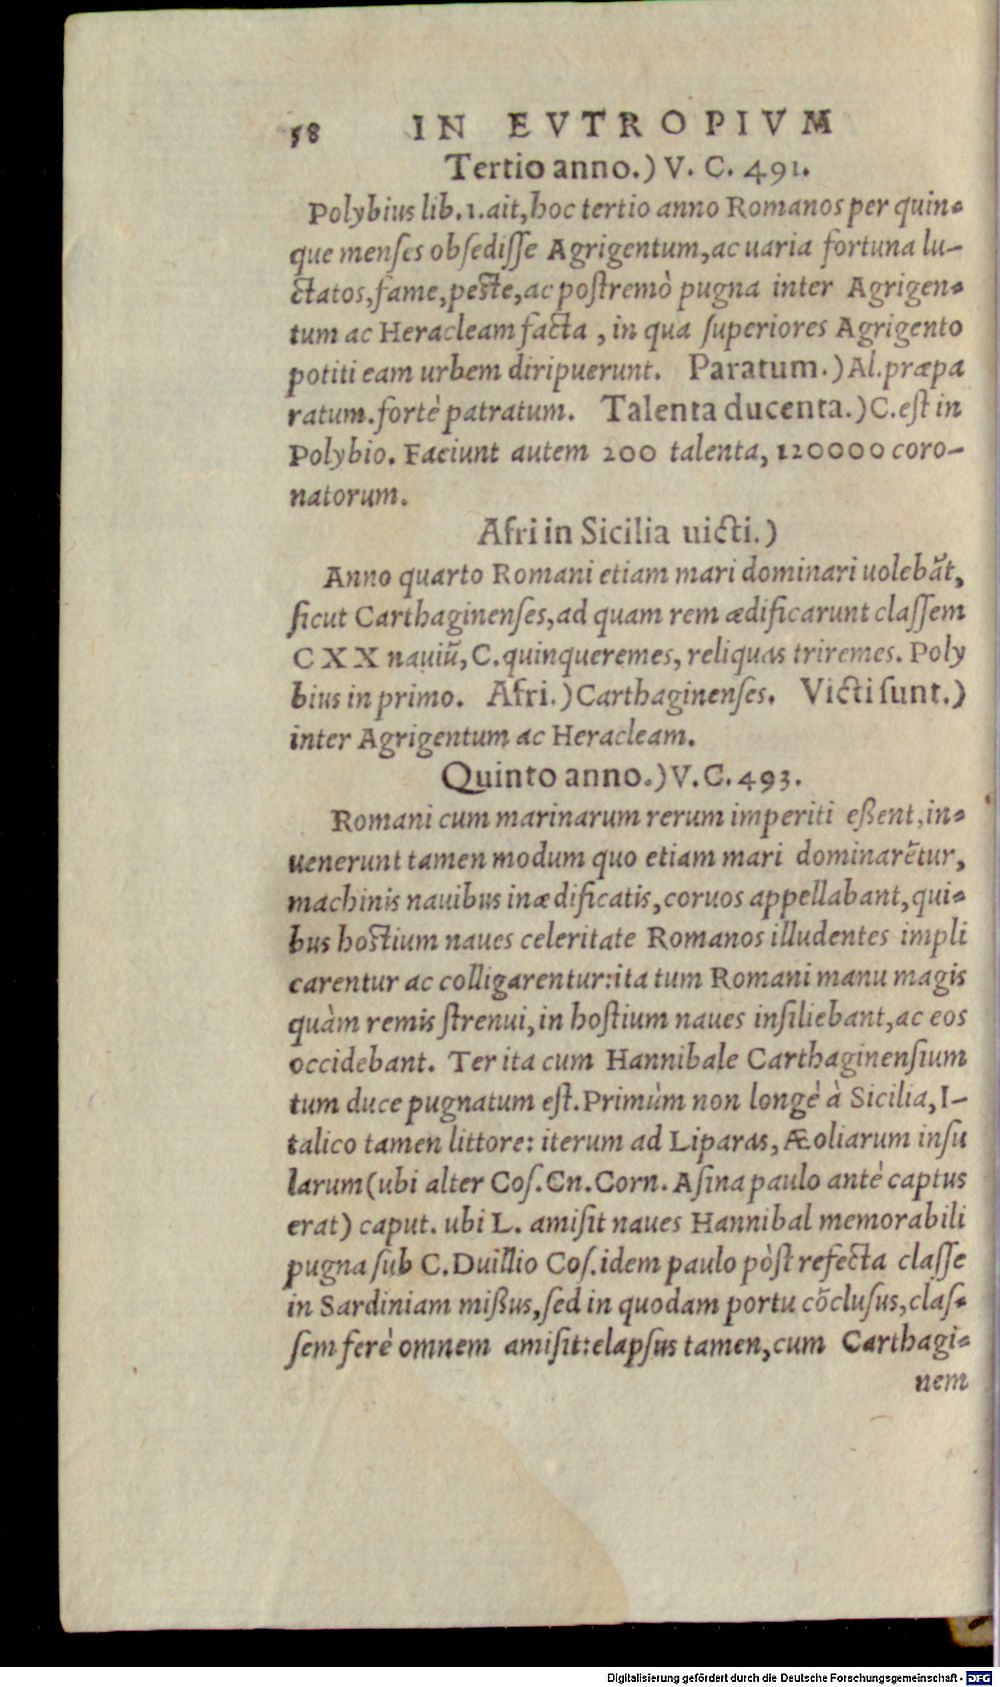 58 IN EVTROPIVM
Tertio anno.) V. C. 491.
Polybius lib. 1. ait, hoc tertio anno Romanos per quin-
que menſes obſediſſe Agrigentum, ac uaria fortuna lu-
ctatos, fame, peſte, ac poſtremò pugna inter Agrigen-
tum ac Heracleam facta, in qua ſuperiores Agrigento
potiti eam urbem diripuerunt. Paratum.) Al. præpa
ratum. fortè patratum. Talenta ducenta.) C. eſt in
Polybio. Faciunt autem 200 talenta, 120000 coro-
natorum.
Afri in Sicilia uicti.)
Anno quarto Romani etiam mari dominari uolebãt,
ſicut Carthaginenſes, ad quam rem ædificarunt claſſem
CXX nauiũ, C. quinqueremes, reliquas triremes. Poly
bius in primo. Afri.) Carthaginenſes. Victi ſunt.)
inter Agrigentum ac Heracleam.
Quinto anno.) V. C. 493.
Romani cum marinarum rerum imperiti eßent, in-
uenerunt tamen modum quo etiam mari dominarẽtur,
machinis nauibus inædificatis, coruos appellabant, qui-
bus hoſtium naues celeritate Romanos illudentes impli
carentur ac colligarentur: ita tum Romani manu magis
quàm remis ſtrenui, in hoſtium naues inſiliebant, ac eos
occidebant. Ter ita cum Hannibale Carthaginenſium
tum duce pugnatum eſt. Primùm non longè à Sicilia, I-
talico tamen littore: iterum ad Liparas, Æoliarum inſu
larum (ubi alter Coſ. Cn. Corn. Aſina paulo antè captus
erat) caput. ubi L. amiſit naues Hannibal memorabili
pugna ſub C. Duillio Coſ. idem paulo pòſt refecta claſſe
in Sardiniam mißus, ſed in quodam portu cõcluſus, claſ-
ſem ferè omnem amiſit: elapſus tamen, cum Carthagi-
nem
Digitalisierung gefördert durch die Deutsche Forschungsgemeinschaft - DFG